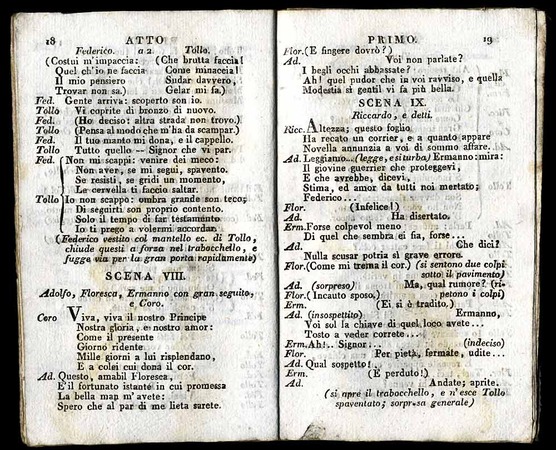 18 ATTO
Federico. a 2 Tollo.
(Costui m'impaccia: (Che brutta faccia!
Quel ch'io ne faccia Come minaccia!
Il mio pensiero Sudar davvero,
Trovar non sa.) Gelar mi fa.)
Fed. Gente arriva: scoperto son io.
Tollo Vi coprite di bronzo di nuovo.
Fed. (Ho deciso: altra strada non trovo.)
Tollo (Pensa al modo che m'ha da scampar.)
Fed. Il tuo manto mi dona, e il cappello.
Tollo Tutto quello — Signor che vi par.
Fed. (Non mi scappi: venire dei meco:
Non aver, se mi segui, spavento.
Se resisti, se gridi un momento,
Le cervella ti faccio saltar.
Tollo Io non scappo: ombra grande son teco;
Di seguirti son proprio contento.
Solo il tempo di far testamento
Io ti prego a volermi accordar.
(Federico vestito col mantello ec. di Tollo,
chiude questi a forza nel trabocchello, e
fugge via per la gran porta rapidamente)
SCENA VIII.
Adolfo, Floresca, Ermanno con gran seguito,
e Coro.
Coro Viva, viva il nostro Principe
Nostra gloria, e nostro amor:
Come il presente
Giorno ridente
Mille giorni a lui risplendano,
E a colei cui dona il cor.
Ad. Questo, amabil Floresca,
E'il fortunato istante in cui promessa
La bella man m'avete:
Spero che al par di me lieta sarete.
PRIMO. 19
Flor. (E fingere dovrò?)
Ad. Voi non parlate?
I begli occhi abbassate?
Ah! quel pudor che in voi ravviso, e quella
Modestia sì gentil vi fa più bella.
SCENA IX.
Riccardo, e detti.
Ricc. Altezza; questo foglio
Ha recato un corrier, e a quanto appare
Novella annunzia a voi di sommo affare.
Ad. Leggiamo... (legge, e si turba) Ermanno: mira:
Il giovine guerrier che proteggevi,
E che avrebbe, dicevi,
Stima, ed amor da tutti noi mertato;
Federico...
Flor. (Infelice!)
Ad. Ha disertato.
Erm. Forse colpevol meno
Di quel che sembra ei fia, forse...
Ad. Che dici?
Nulla scusar potria sì grave errore.
Flor. (Come mi trema il cor.) (si sentono due colpi
sotto il pavimento)
Ad. (sorpreso) Ma, qual rumore? (ri-
Flor. (Incauto sposo,) petono i colpi)
Erm. (Ei si è tradito.)
Ad. (insospettito) Ermanno,
Voi sol la chiave di quel loco avete...
Tosto a veder correte...
Erm. Ah!.. Signor... (indeciso)
Flor. Per pietà, fermate, udite...
Ad. Qual sospetto!
Erm. (E perduto!)
Ad. Andate; aprite.
(si apre il trabocchello, e n'esce Tollo
spaventato; sorpresa generale)